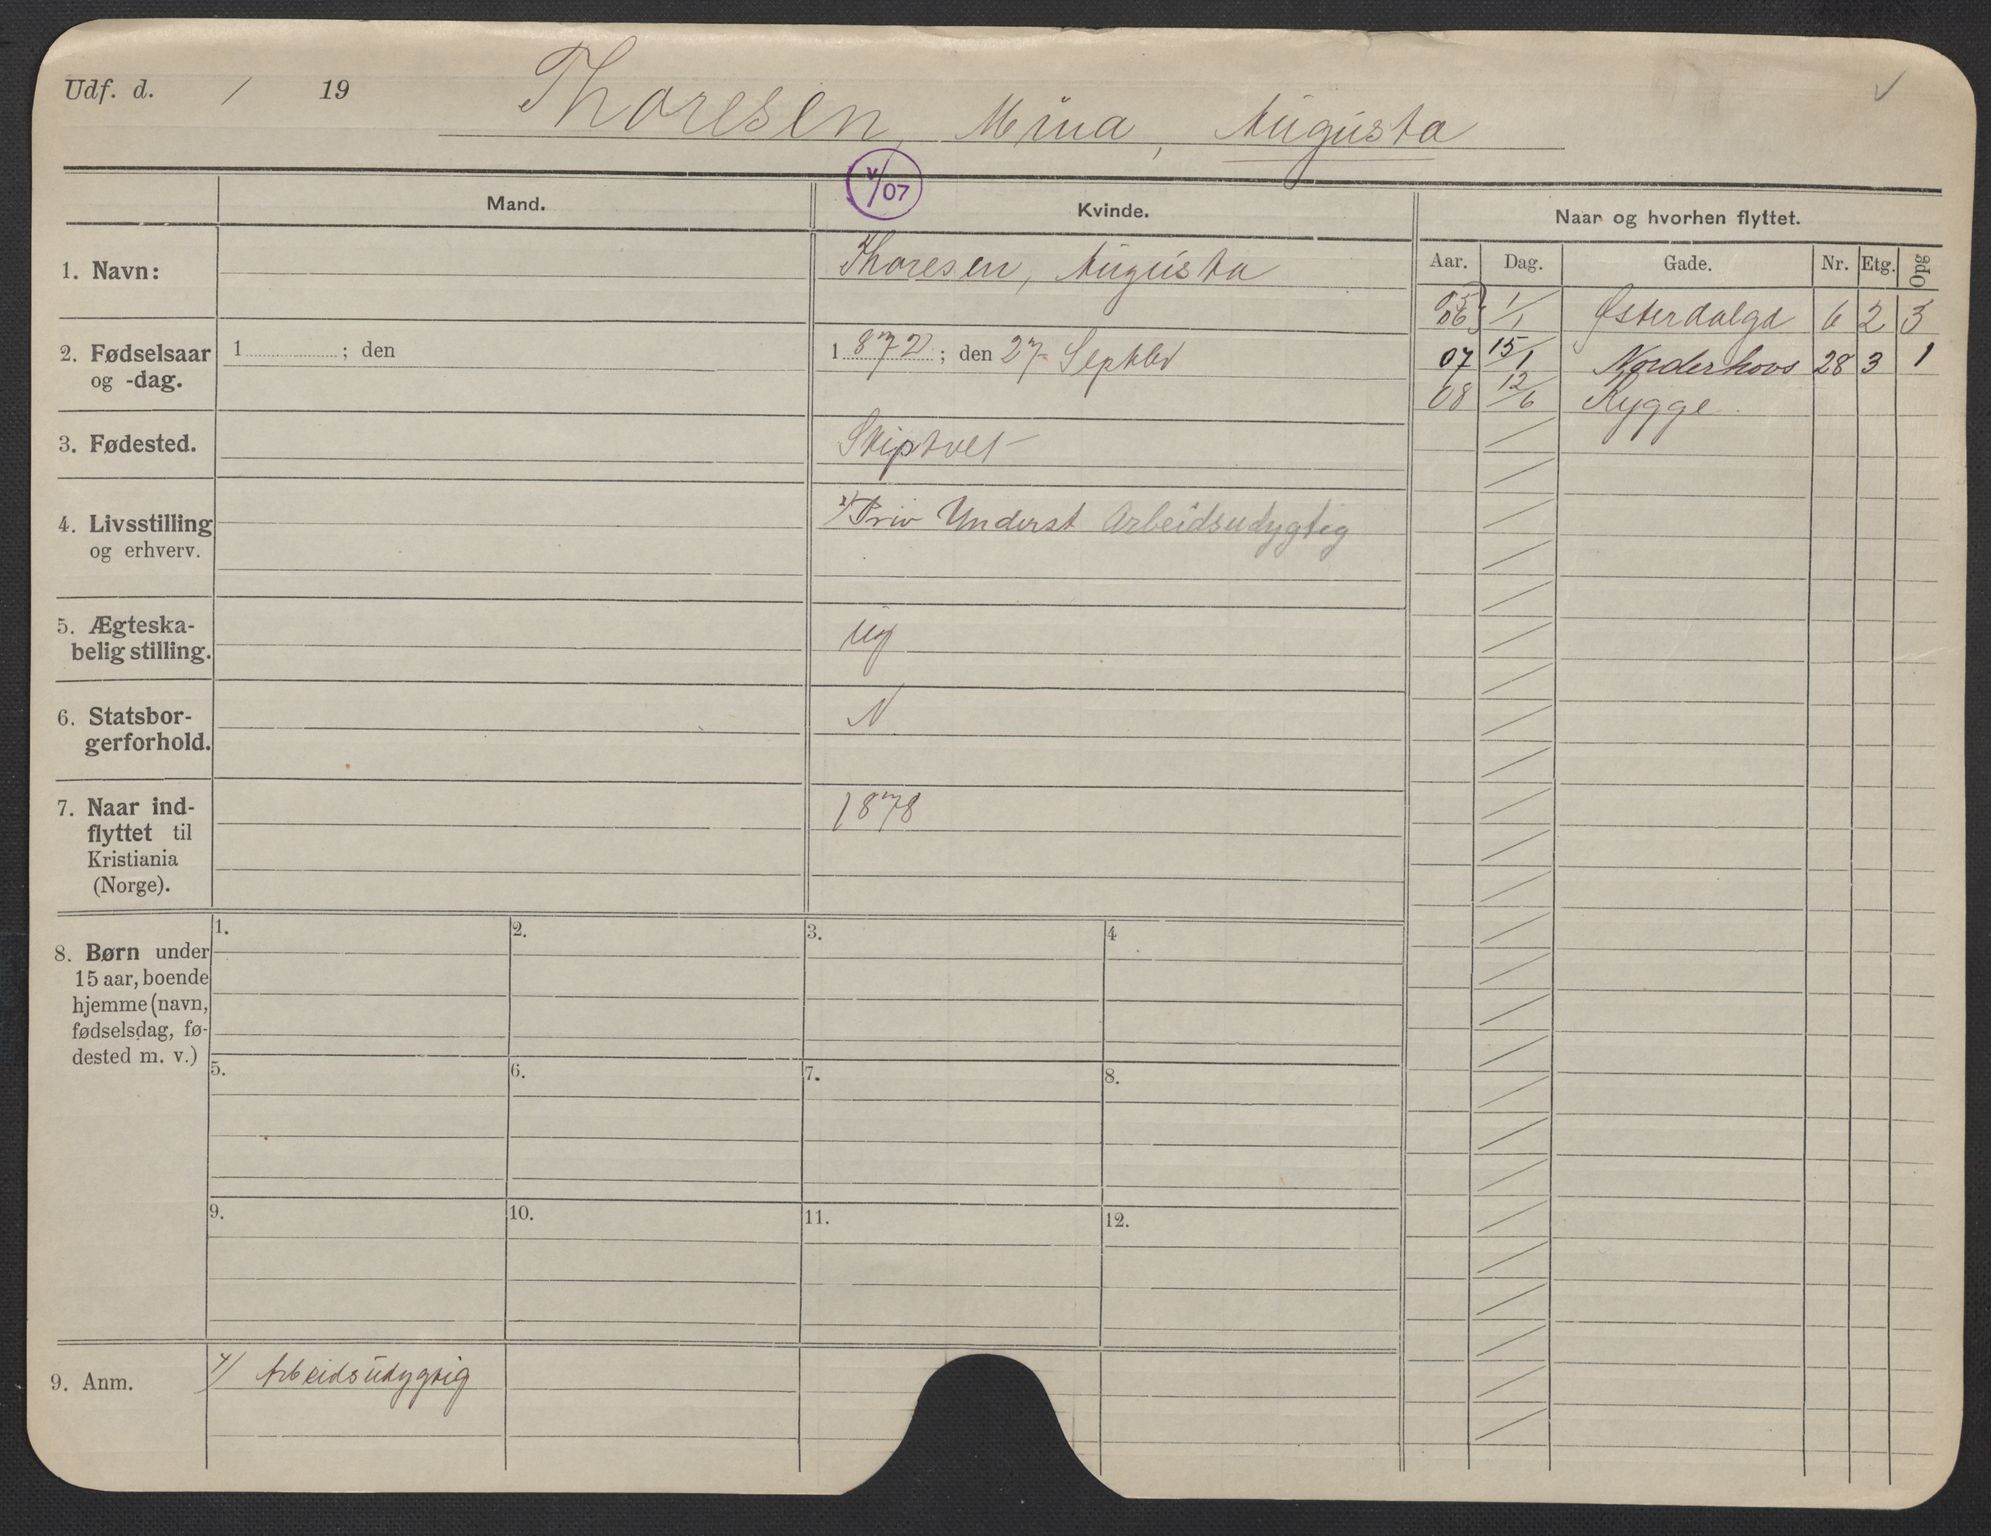 Udf. d. / 19
Thoresen, Mina, Augusta
v/07
Mand.
Kvinde.
Naar og hvorhen flyttet.
Aar. Dag. Gade. Nr. Etg. Opg
1. Navn:
Thoresen, Augusta
05
06 1/1 Østerdalgd 6 2 3
2. Fødselsaar
og -dag.
1 ; den
1 872 ; den 27 Septbr
07 15/1 Norderhovs 28 3 1
08 12/6 Rygge
3. Fødested.
Skiptvet
4. Livsstilling
og erhverv.
Priv Underst Arbeidsudygtig
5. Ægteska-
belig stilling.
ug
6. Statsbor-
gerforhold.
N
7. Naar ind-
flyttet til
Kristiania
(Norge).
1878
8. Børn under
15 aar, boende
hjemme (navn,
fødselsdag, fø-
dested m. v.)
1. 2. 3. 4
5. 6. 7. 8.
9. 10. 11. 12.
9. Anm.
Arbeidsudygtig